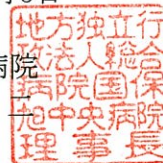 病院
地方独立行
政法人総合
病院国保
旭中央病院
理事長